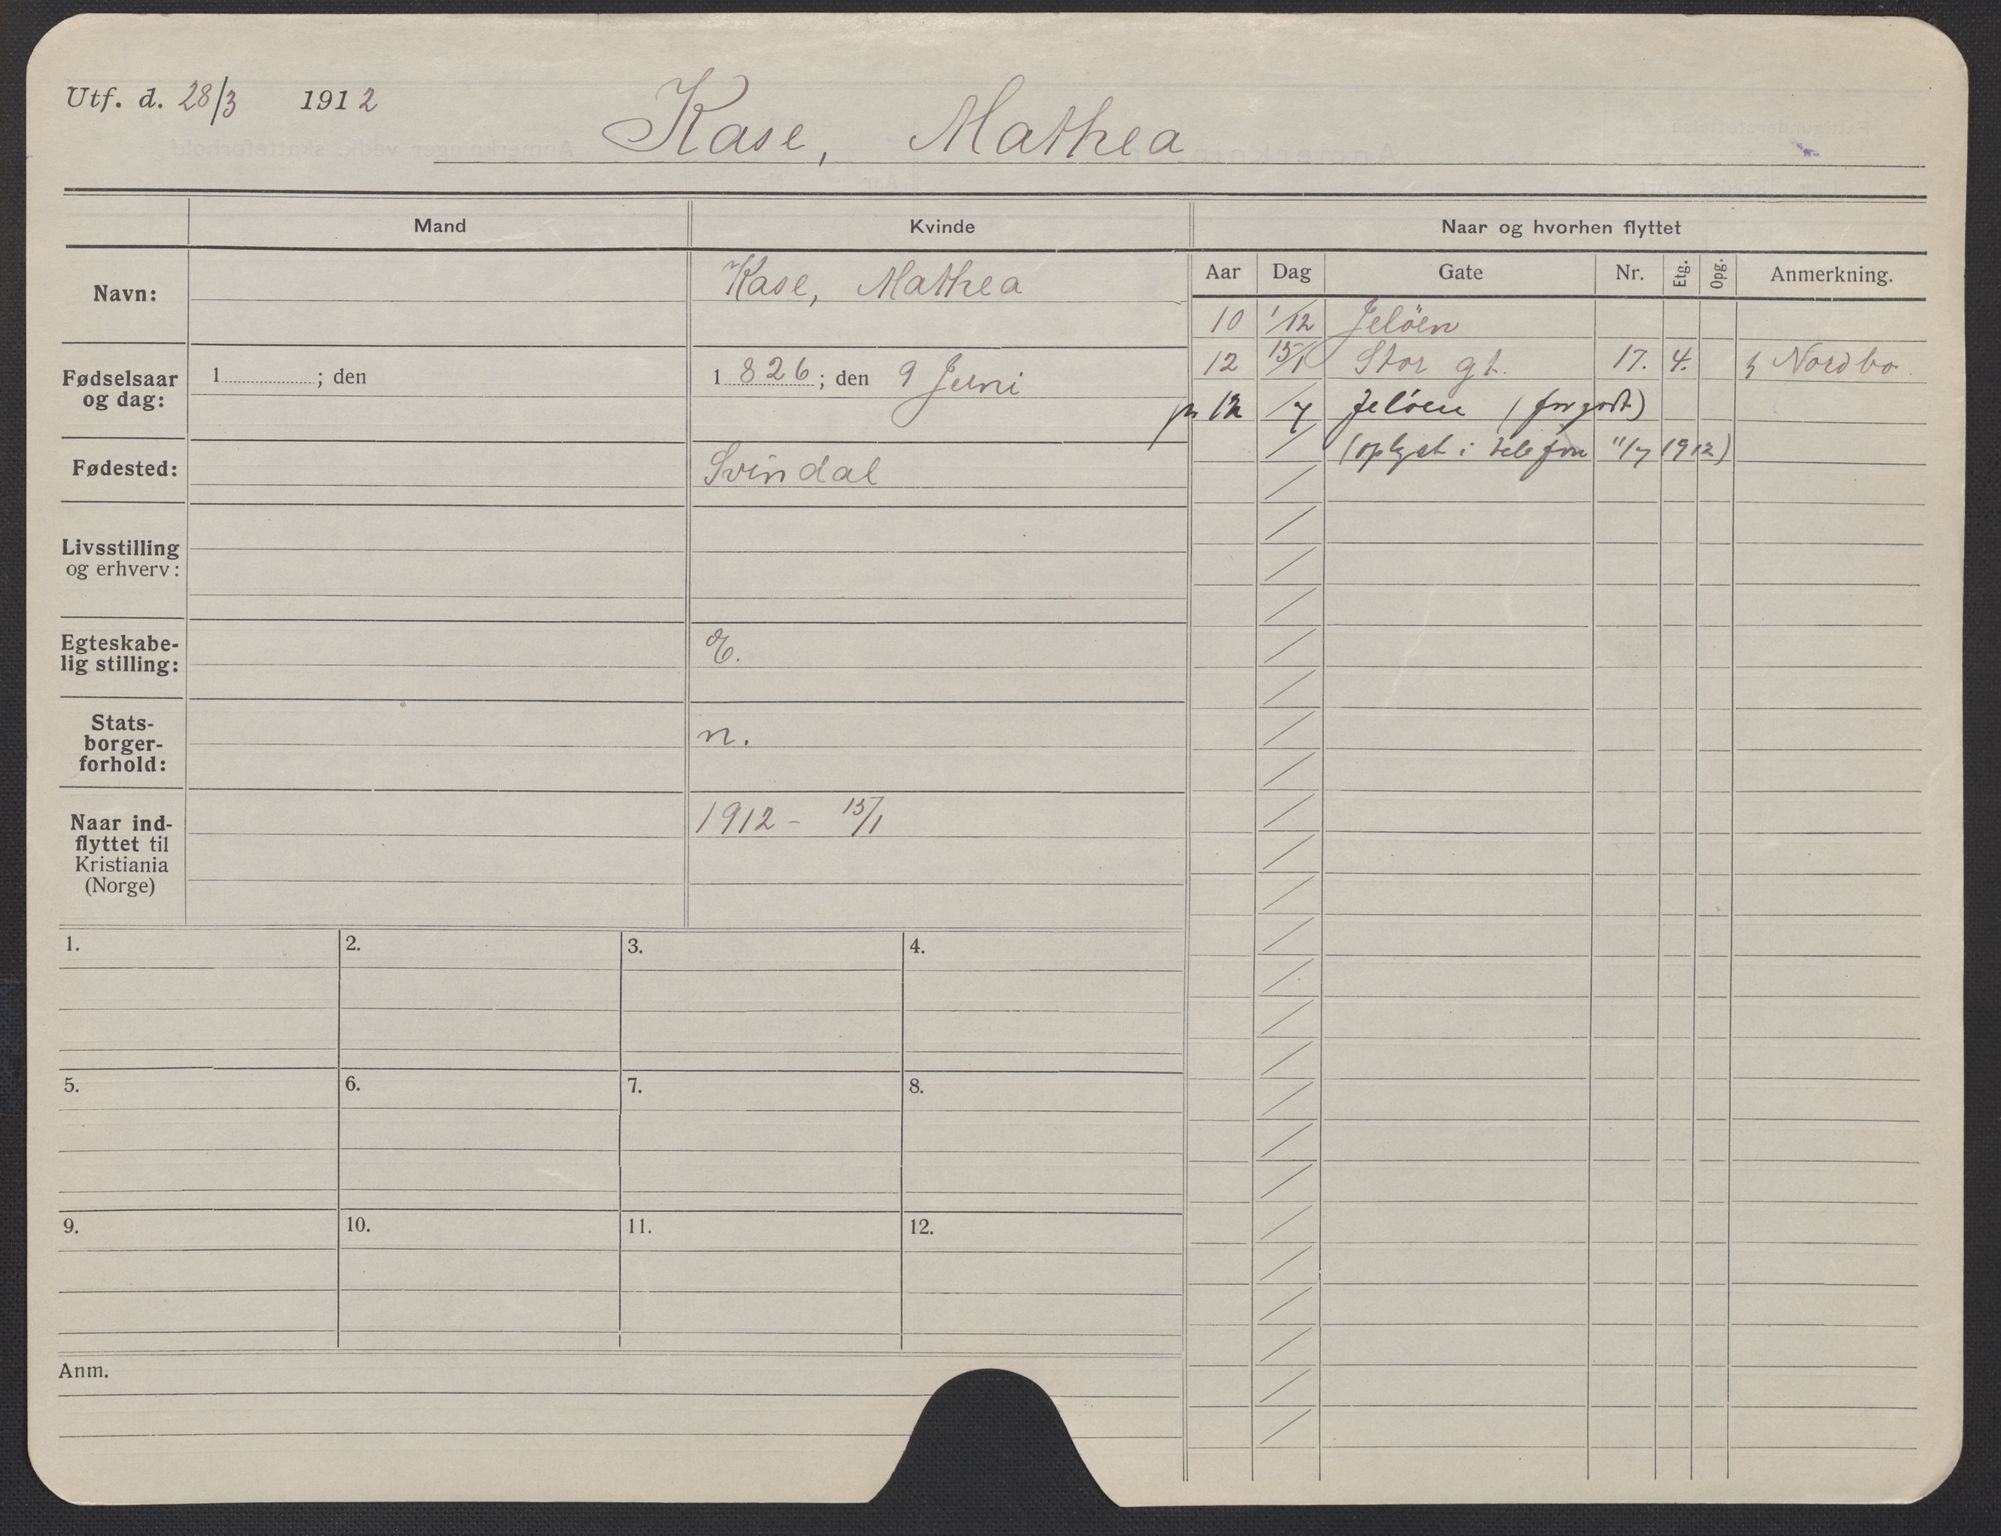 Utf. d. 28/3 1912
Kase, Mathea
Mand Kvinde Naar og hvorhen flyttet
Aar Dag Gate Nr. Etg. Opg. Anmerkning.
Navn: Kase, Mathea
10 1/12 Jeløen
Fødselsaar og dag: 1 ; den 1826; den 9 Juni
12 15/1 Stor gt. 17. 4. Nordbo
12 /7 Jeløen
(oplyst i telefon 11/7 1912)
Fødested: Svindal
Livsstilling
og erhverv:
Egteskabe-
lig stilling: E.
Stats-
borger-
forhold: n.
Naar ind-
flyttet til
Kristiania
(Norge) 1912 - 15/1
1. 2. 3. 4.
5. 6. 7. 8.
9. 10. 11. 12.
Anm.